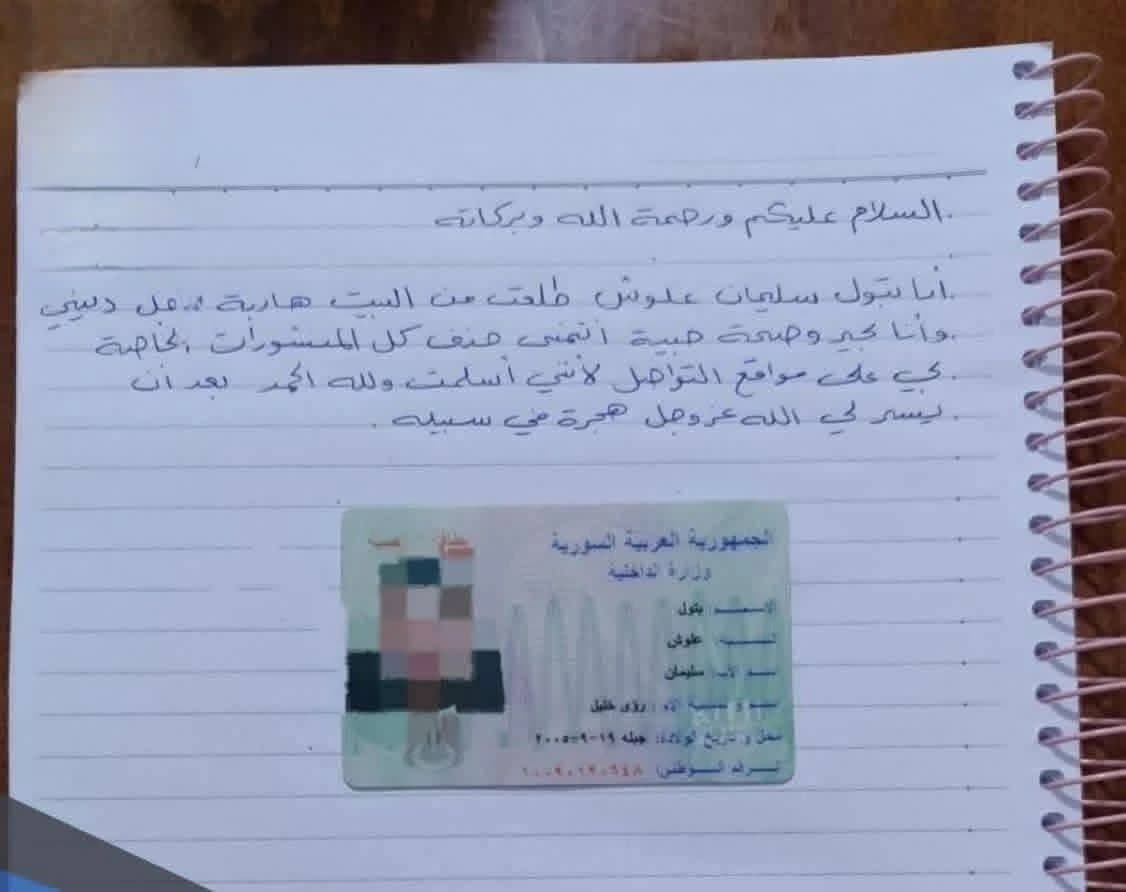 السلام عليكم ورحمة الله وبركاته
أنا بتول سليمان علوش طلعت من البيت هاربة من أجل ديني
وأنا بخير وصحة طيبة أتمنى حذف كل المنشورات الخاصة
بي على مواقع التواصل لأنني أسلمت ولله الحمد بعد أن
يسر لي الله عز وجل هجرة في سبيله.
الجمهورية العربية السورية
وزارة الداخلية
الاسم: بتول
النسبة: علوش
اسم الأب: سليمان
اسم ونسبة الأم: رؤى خليل
محل و تاريخ الولادة: جبله ١٩-٩-٢٠٠٥
الرقم الوطني: